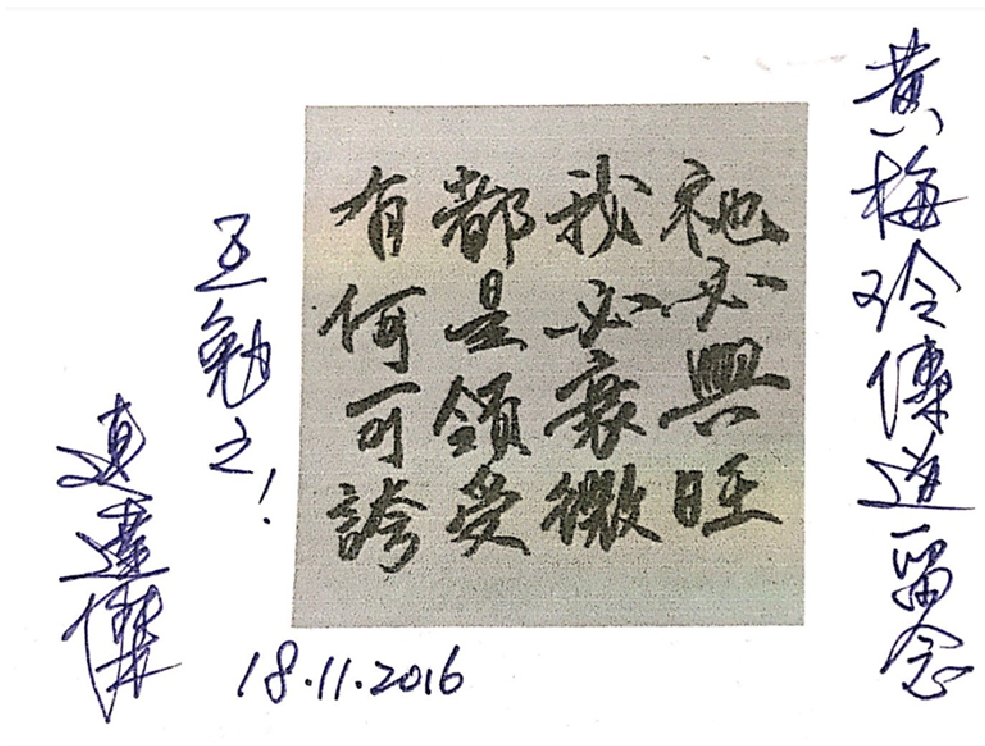 黄梅玲傳道留念
祂必興旺
我必衰微
都是領受
有何可誇
互勉之!
連達傑
18.11.2016